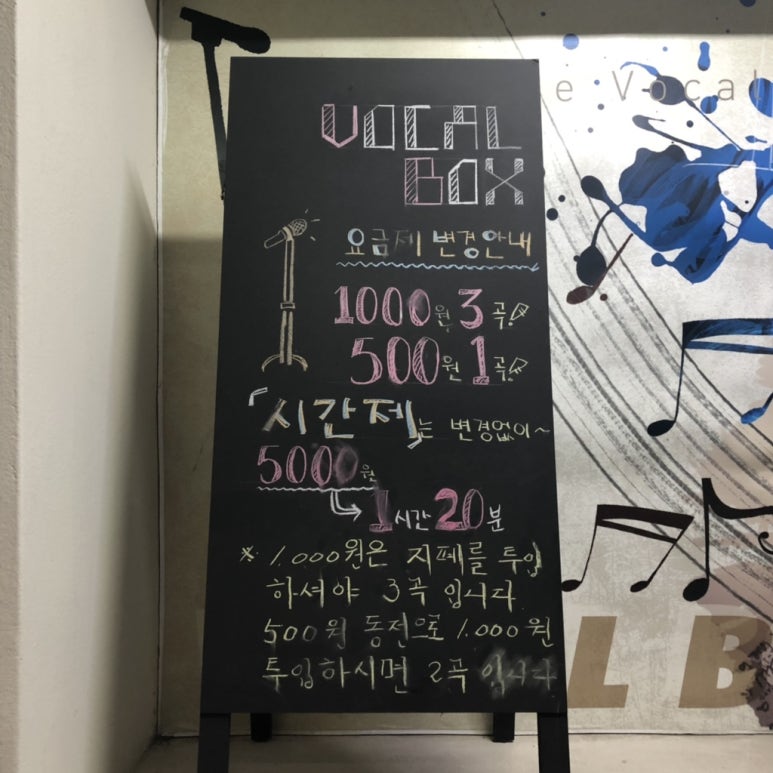 e Vocal
VOCAL
BOX
요금제 변경안내
1000원 3곡!
500원 1곡!
「시간제」는 변경없이~
5000원
1시간 20분
※ 1.000원은 지폐를 투입
하셔야 3곡 입니다
500원 동전으로 1.000원
투입하시면 2곡 입니다
L B